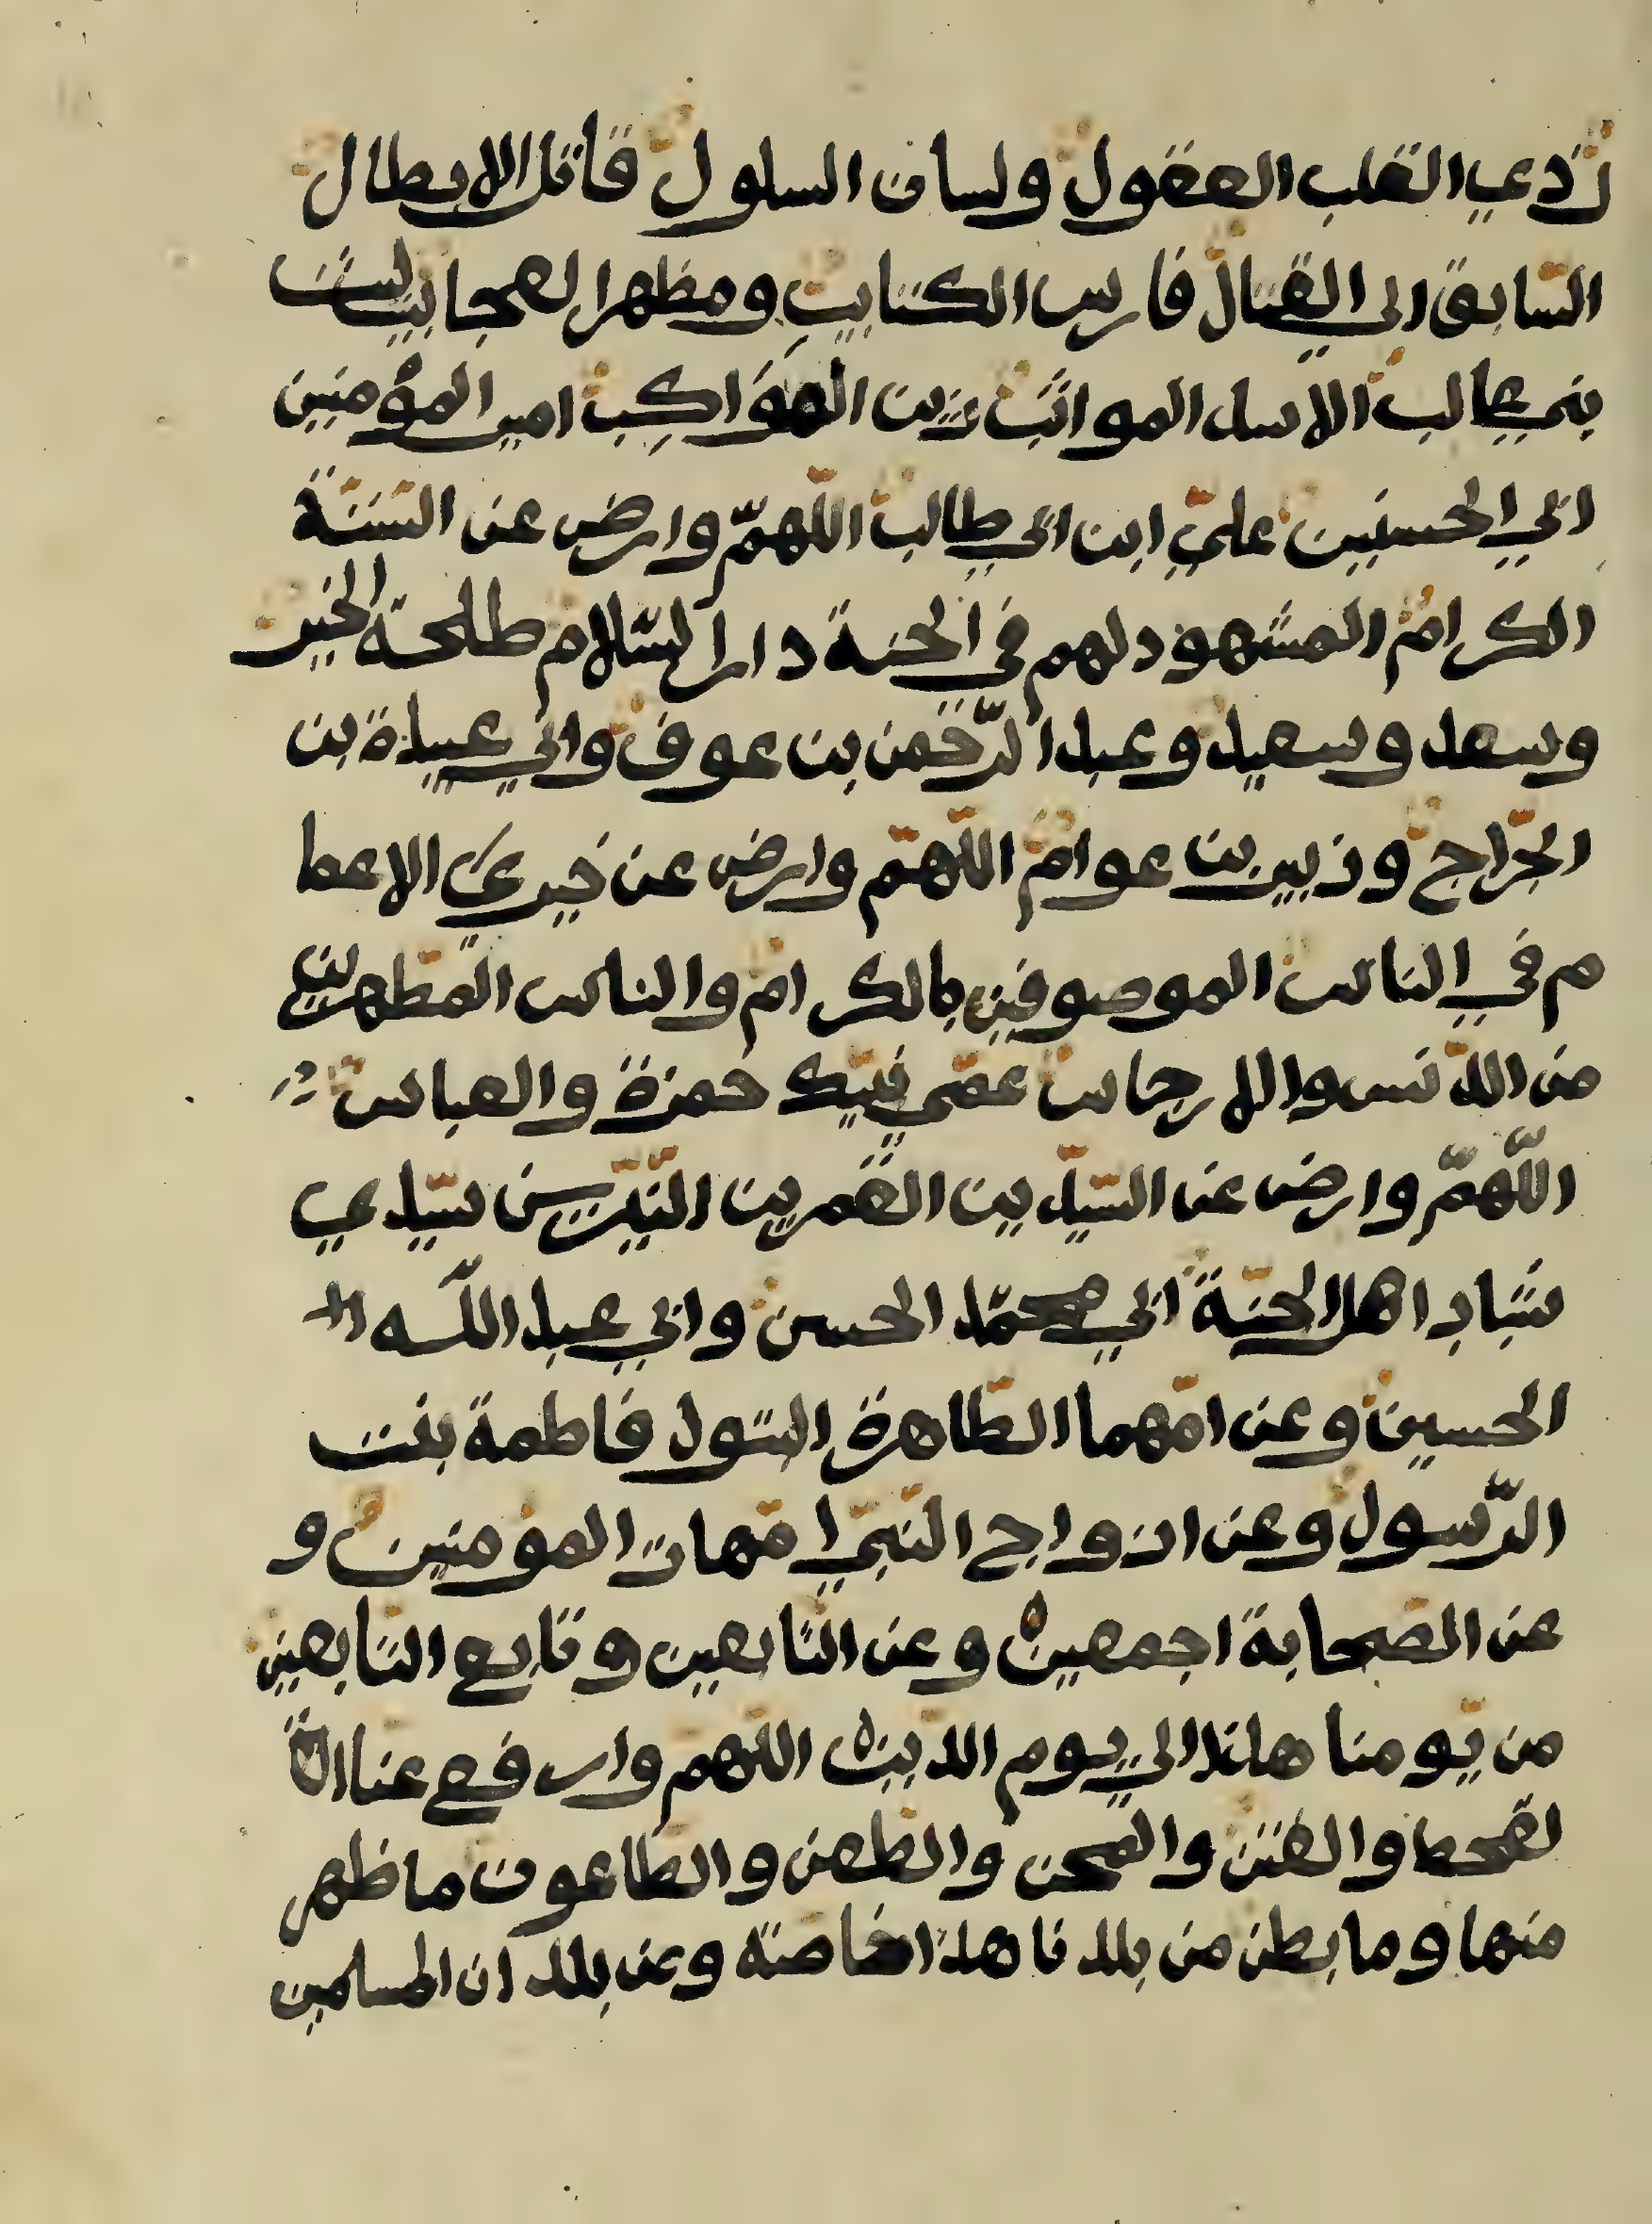 ن ذي القلب العقول ولسان السلول قاتل الابطال
السابق الى القتال فارس الكتايب ومظهرا لعجايب ليث
بني غالب الاسد المواثب زين المواكب امير المؤمنين
ابي الحسنين علي ابن ابي طالب اللّهمّ وارض عن الستة
الكرام المشهود لهم في الجنة دار السّلام طلحة الخير
وسعد وسعيد وعبد الرّحمن بن عوف وابي عبيدة بن
الجرّاح وزبير بن عوام اللّهمّ وارض عن خيري الاعما
م في الناس الموصوفين بالكرام والناس المطهرين
من الدّنس والارجاس عمّي نبيّك حمزة والعباس
اللّهمّ وارض عن السّيّدين القمرين النّيّرين سيّدي
شباب اهل الجنّة ابي محمّد الحسن وابي عبد اللّه
الحسين وعن امّهما الطّاهرة البتول فاطمة بنت
الرّسول وعن ازواج النّبيّ امّهات المؤمنين و
عن الصّحابة اجمعين وعن التّابعين وتابع التّابعين
من يّومنا هذا الي يوم الدّين اللّهمّ وارفع عنّا
لقحط والفتن والمحن والطعن والطّاعون ما ظهر
منها وما بطن من بلدنا هذا خاصّة وعن بلدان المسلمين